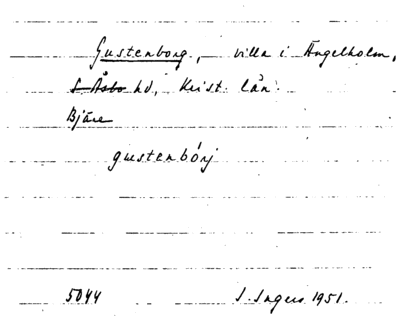 Gustenborg, villa i Ängelholm,
S Åsbo hd, Krist. län.
Bjäre
gustenbórj
5044 S. Ingers 1951.